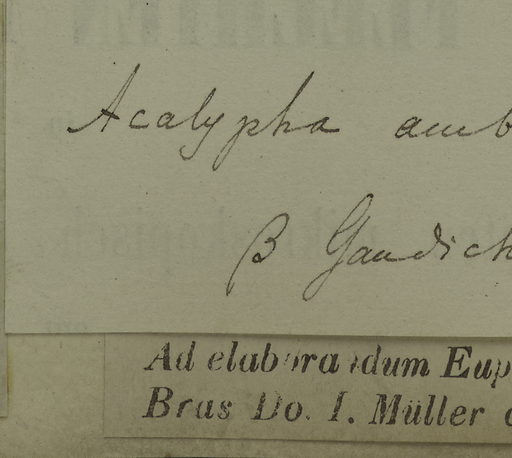 Acalypha amb
β Gaudich
Ad elaborandum Eup
Bras Do. I. Müller